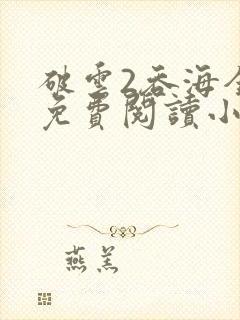 破雲2吞海全
免費閱讀小
燕羔